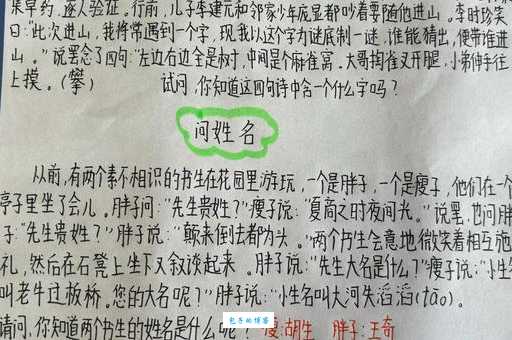 果草药,逐人验证,行前,儿子李建元和邻家少年庞显都吵着要随他进山。李时珍笑
曰:"此次进山,我将常遇到一个字,现我以这字为谜底制一谜,谁能猜出,便带谁进
山。"说罢念了四句:"左边右边全是树,中间是个麻雀窝。大哥掏雀叉开腿,小弟伸手往
上摸。(攀) 试问,你知道这四句诗中含一个什么字吗?
问姓名
从前,有两个素不相识的书生在花园里游玩,一个是胖子,一个是瘦子,他们在一个
亭子里坐了会儿。胖子问:"先生贵姓?"瘦子说:"夏商之时夜间光。"说罢,也问胖
子:"先生贵姓?"胖子说:"颠来倒去都为头。"两个书生会意地微笑着相互施
礼,然后在石凳上坐下又叙谈起来。胖子说:"先生大名是什么?"瘦子说:"小生名
叫老牛过板桥。您的大名呢?"胖子说:"小生名叫大河失滔滔(tāo)。
请问,你知道两个书生的姓名是什么呢? 瘦:胡生 胖子:王奇
包子的博客